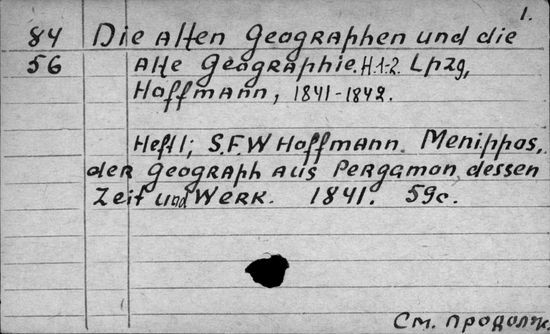 1.
84 Die alten Geographen und die
56 Alte Geographie. H.1-2. Lpzg,
Hoffmann, 1841-1842.
Heft 1; S.F.W Hoffmann. Menippos,
der Geograph aus Pergamon, dessen
Zeit und Werk. 1841. 59с.
См. продолж